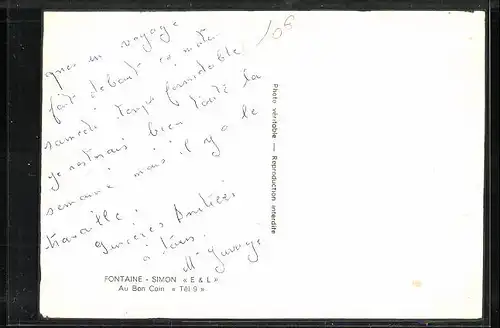 que en voyage
10f
fête debout ce matin
samedi temps formidable
je restrais bien toute la
semaine mais il y a le
travaille.
sincères Amitiés
à tous.
Mr
Photo véritable — Reproduction interdite
FONTAINE - SIMON « E & L »
Au Bon Coin « Tél 9 »